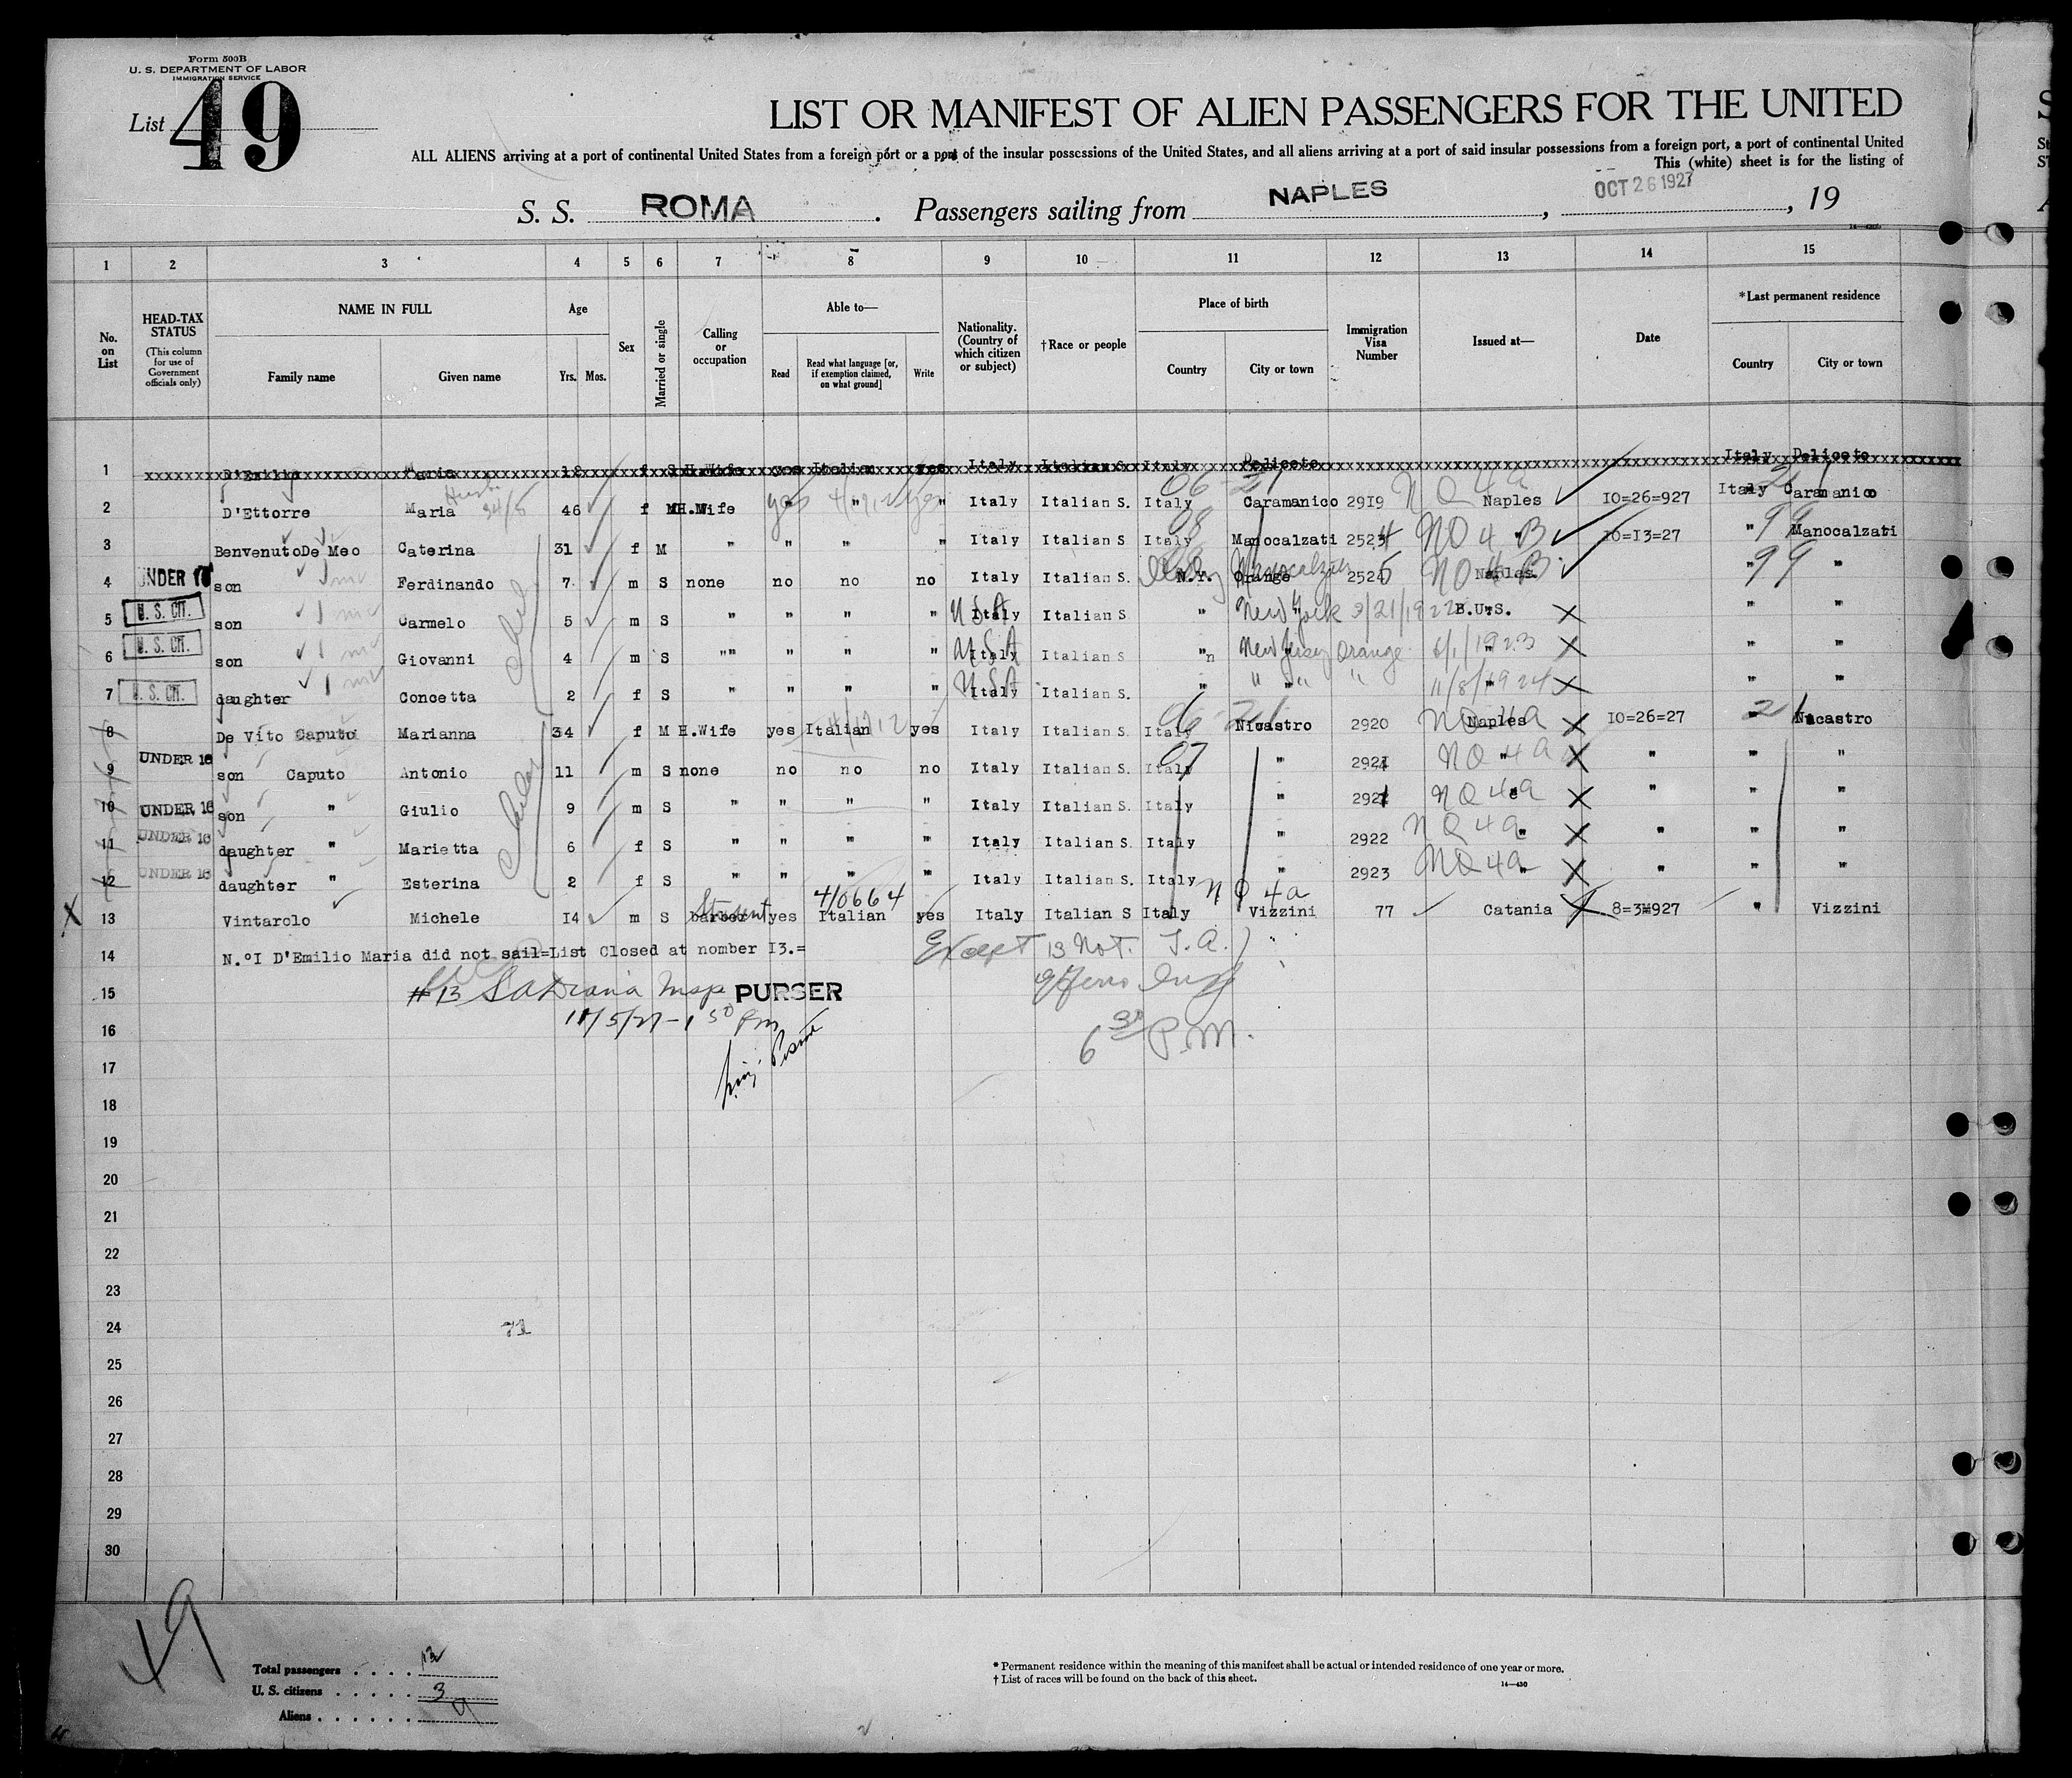 Form 500B
U. S. DEPARTMENT OF LABOR
IMMIGRATION SERVICE
List 49
LIST OR MANIFEST OF ALIEN PASSENGERS FOR THE UNITED
ALL ALIENS arriving at a port of continental United States from a foreign port or a port of the insular possessions of the United States, and all aliens arriving at a port of said insular possessions from a foreign port, a port of continental United
This (white) sheet is for the listing of
S. S. ROMA . Passengers sailing from NAPLES , OCT 26 1927 , 19
1 2 3 4 5 6 7 8 9 10 11 12 13 14 15
No. on List
HEAD-TAX STATUS (This column for use of Government officials only)
NAME IN FULL
Family name Given name
Age
Yrs. Mos.
Sex
Married or single
Calling or occupation
Able to—
Read Read what language [or, if exemption claimed, on what ground] Write
Nationality. (Country of which citizen or subject)
†Race or people
Place of birth
Country City or town
Immigration Visa Number
Issued at—
Date
*Last permanent residence
Country City or town
1 D'Emilio Maria 18 f S H.Wife yes Italian yes Italy Italian S. Italy Deliceto Italy Deliceto
2 D'Ettorre Maria 46 f M H.Wife yes " " Italy Italian S. Italy Caramanico 2919 NQ4a Naples 10=26=927 Italy Caramanico
3 Benvenuto De Meo Caterina 31 f M " " " " Italy Italian S Italy Manocalzati 25234 NQ4B 10=13=27 " Manocalzati
4 UNDER 16 son Ferdinando 7 m S none no no no Italy Italian S. N.Y. Orange Manocalzati 2524 5 NQ4B Naples " 99 "
5 U. S. CIT. son Carmelo 5 m S " " " " USA Italy Italian S " New York 3/21/1922 B.U.S. X " "
6 U. S. CIT. son Giovanni 4 m S "" " " USA Italy Italian S " New Jersey Orange 6/1/1923 " X " "
7 U. S. CIT. daughter Concetta 2 f S " " " " USA Italy Italian S. " " " 11/8/1924 X " "
8 De Vito Caputo Marianna 34 f M H.Wife yes Italian yes Italy Italian S. Italy Nicastro 2920 NQ4a Naples X 10=26=27 " Nicastro
9 UNDER 16 son Caputo Antonio 11 m S none no no no Italy Italian S. Italy " 2921 NQ4a " X " " "
10 UNDER 16 son " Giulio 9 m S " " " " Italy Italian S. Italy " 2921 NQ4a " X " " "
11 UNDER 16 daughter " Marietta 6 f S " " " " Italy Italian S. Italy " 2922 NQ4a " X " " "
12 UNDER 16 daughter " Esterina 2 f S " " " " Italy Italian S. Italy " 2923 NQ4a " X " " "
410664 NQ 4a
X 13 Vintarolo Michele 14 m S barber Student yes Italian yes Italy Italian S Italy Vizzini 77 Catania X 8=3=927 " Vizzini
14 N.º I D'Emilio Maria did not sail=List Closed at nomber I3.= Except 13 Not.
15 #13 Insp PURSER
16 11/5/27 - 1 50 Pm 6 30 P.M.
17
18
19
20
21
22
23
24 71
25
26
27
28
29
30
49
Total passengers . . . . 12
U. S. citizens . . . . . 3
Aliens . . . . . . 9
* Permanent residence within the meaning of this manifest shall be actual or intended residence of one year or more.
† List of races will be found on the back of this sheet.
14—430